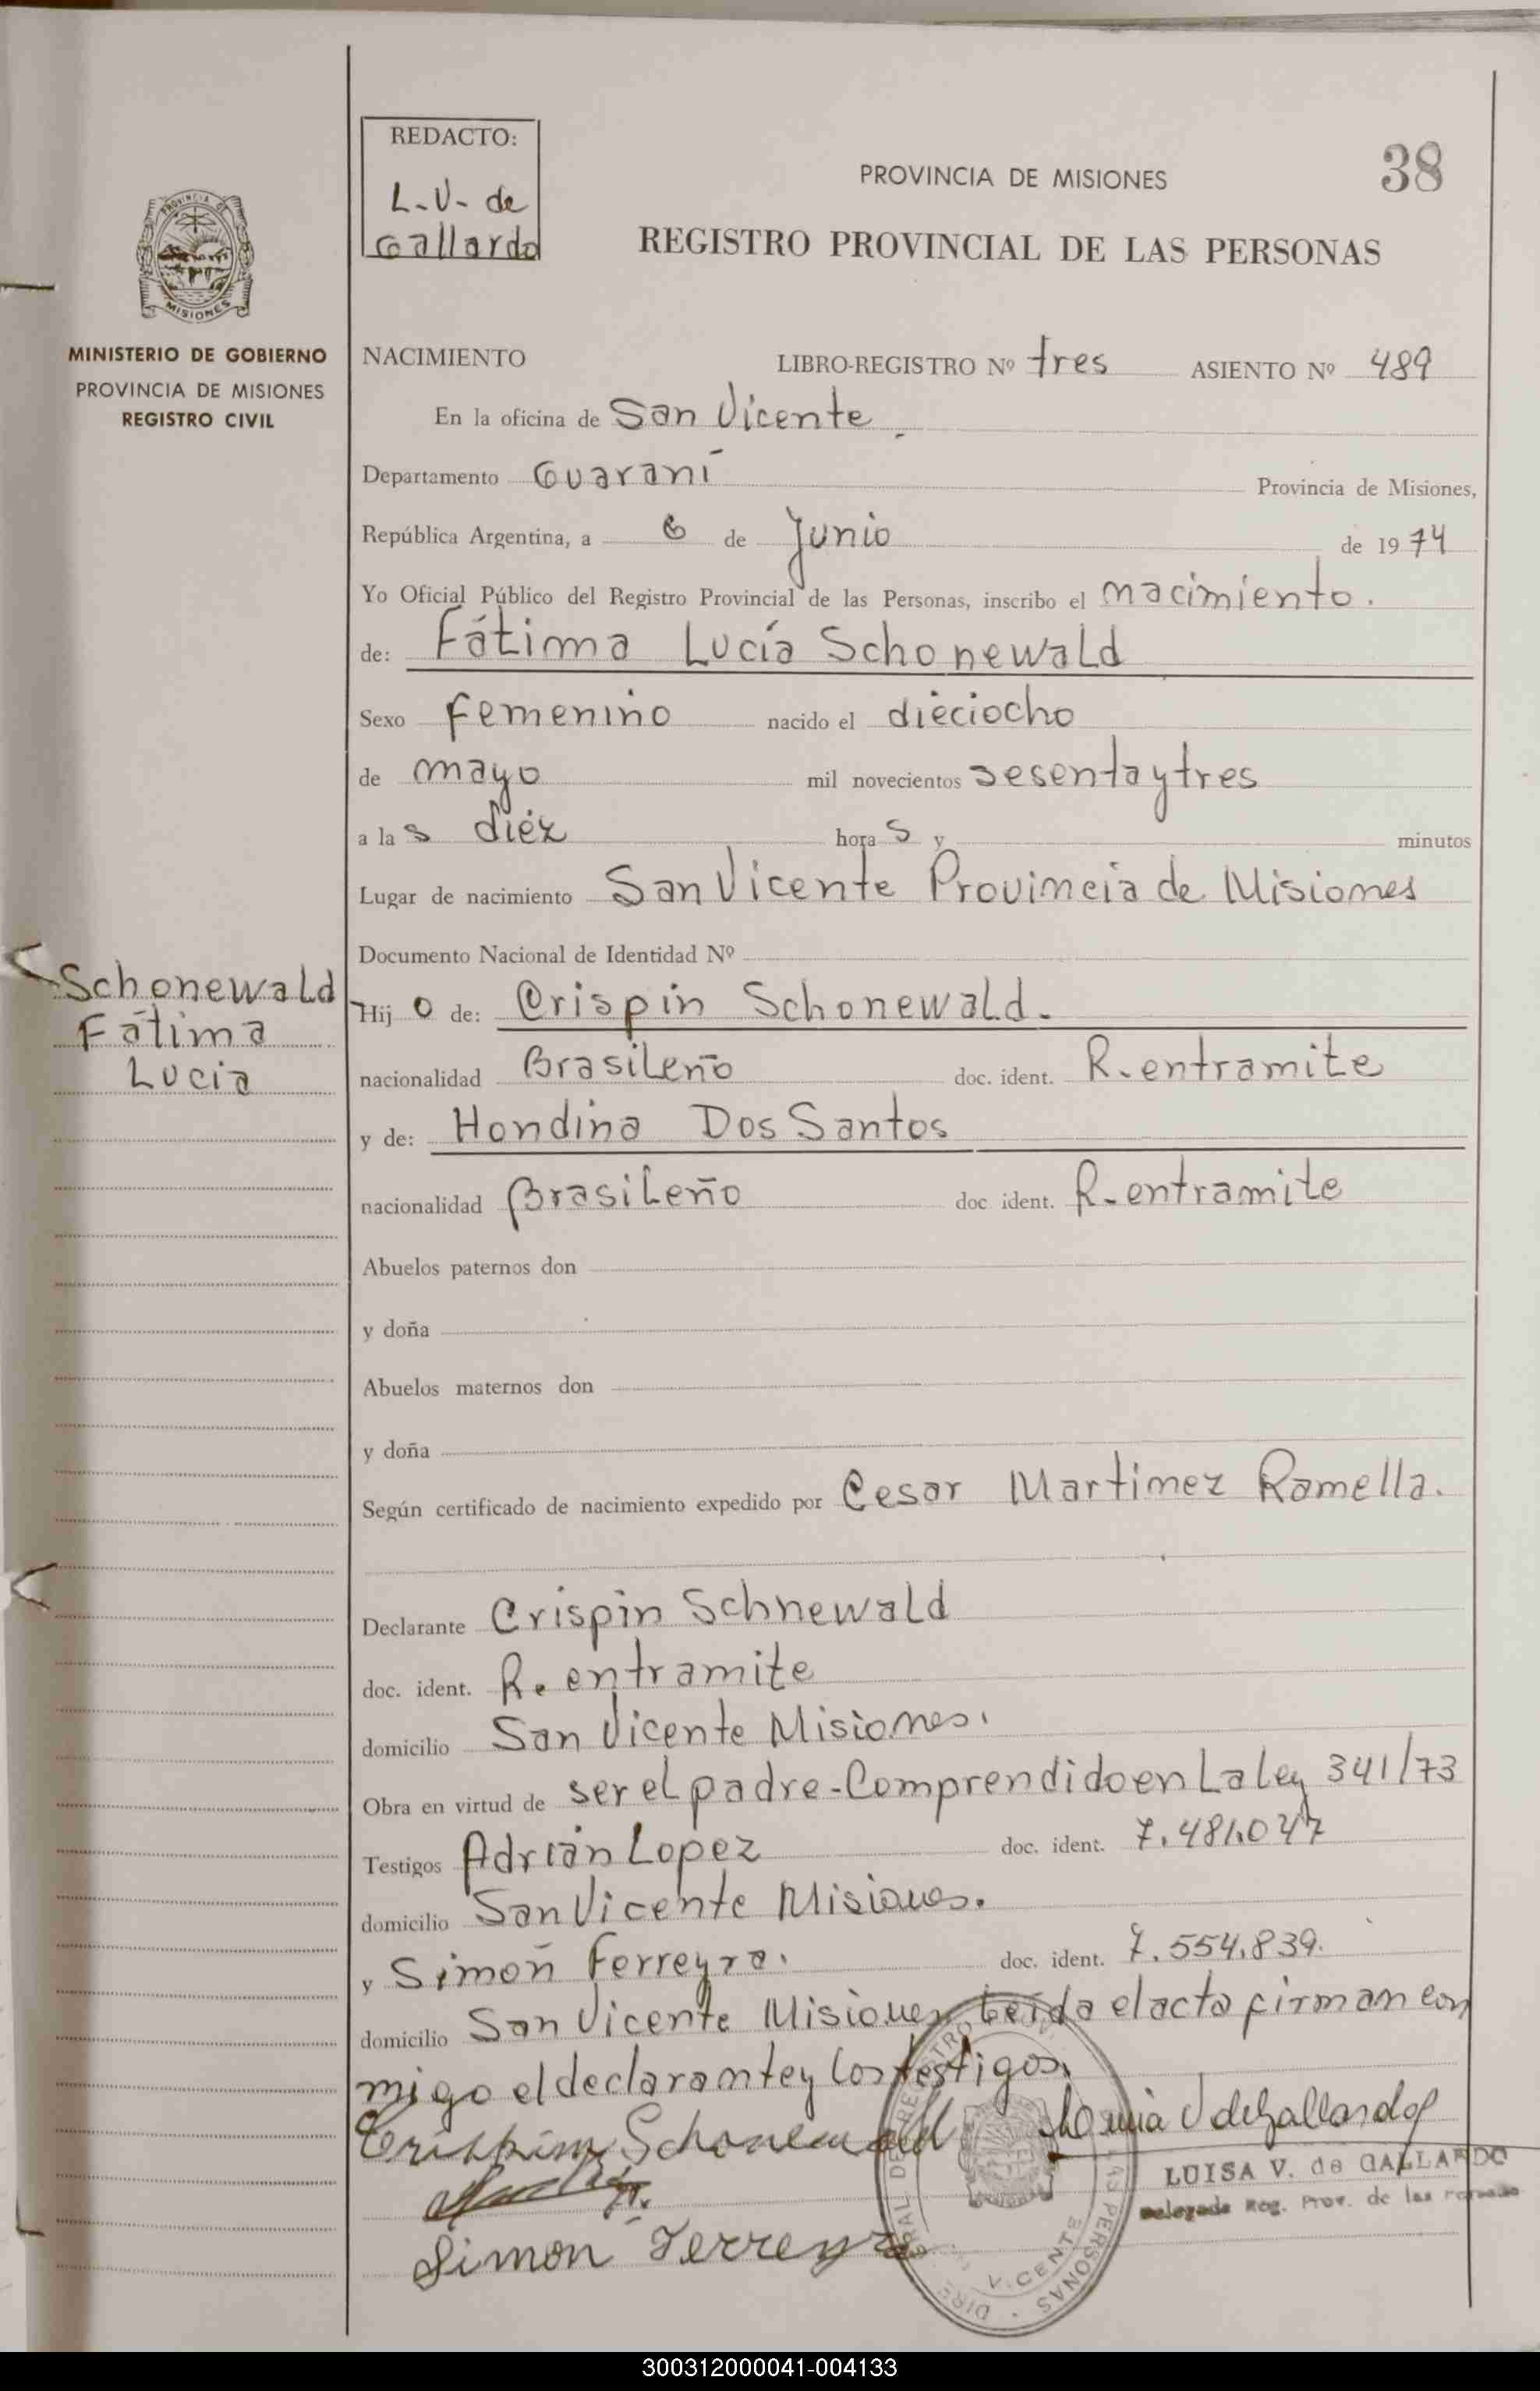 REDACTO:
L.V. de
Gallardo
38
PROVINCIA DE MISIONES
REGISTRO PROVINCIAL DE LAS PERSONAS
PROVINCIA DE
MISIONES
MINISTERIO DE GOBIERNO
PROVINCIA DE MISIONES
REGISTRO CIVIL
NACIMIENTO LIBRO-REGISTRO Nº tres ASIENTO Nº 489
En la oficina de San Vicente.
Departamento Guaraní Provincia de Misiones,
República Argentina, a 6 de Junio de 1974
Yo Oficial Público del Registro Provincial de las Personas, inscribo el nacimiento.
de: Fátima Lucía Schonewald
Sexo Femenino nacido el dieciocho
de mayo mil novecientos sesenta y tres
a las diéz horas y minutos
Lugar de nacimiento San Vicente Provincia de Misiones
Documento Nacional de Identidad Nº
Schonewald
Fátima
Lucia
Hijo de: Crispin Schonewald.
nacionalidad Brasileño doc. ident. R. entramite
y de: Hondina Dos Santos
nacionalidad Brasileño doc ident. R. entramite
Abuelos paternos don
y doña
Abuelos maternos don
y doña
Según certificado de nacimiento expedido por Cesar Martinez Ramella.
Declarante Crispin Schnewald
doc. ident. R. entramite
domicilio San Vicente Misiones.
Obra en virtud de ser el padre-Comprendido en La ley 341/73
Testigos Adrián Lopez doc. ident. 7.481.047
domicilio San Vicente Misiones.
y Simón Ferreyra. doc. ident. 7.554.839.
domicilio San Vicente Misiones Leída el acta firman con
migo el declarante y los testigos.
Crispim Schonewald
Simon Ferreyra
LUISA V. de GALLARDO
Delegada Reg. Prov. de las Personas
V. CENTE
300312000041-004133